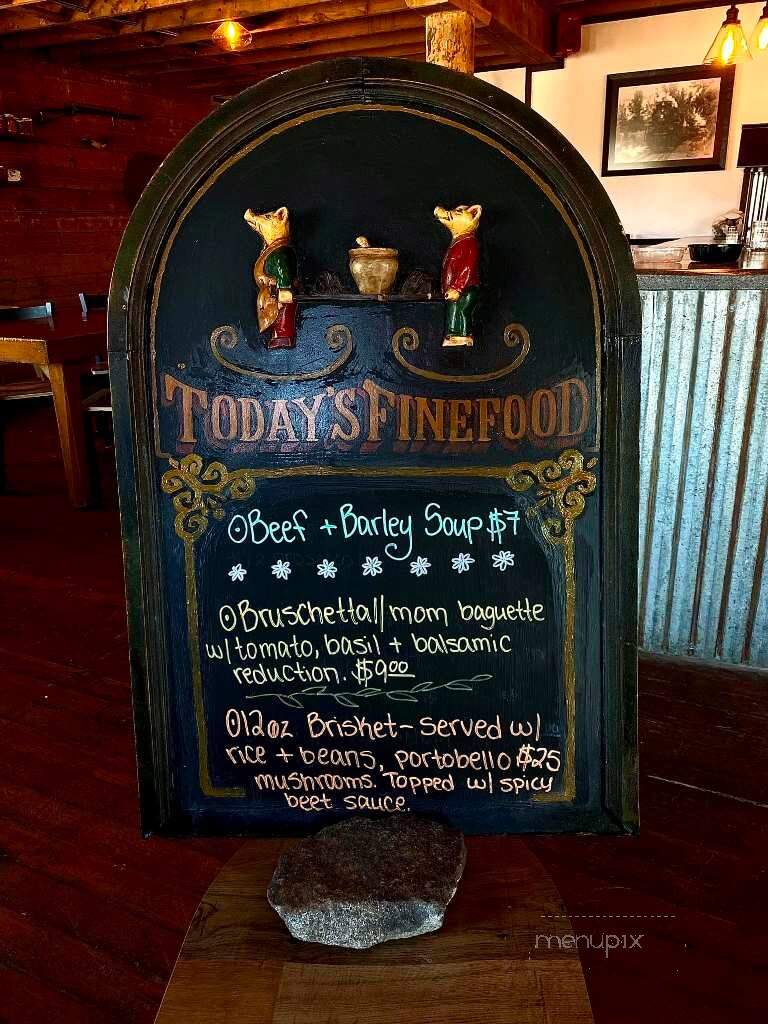 TODAY'S FINEFOOD
Beef + Barley Soup $7
Bruschetta// mom baguette
w/ tomato, basil + balsamic
reduction. $9.00
12oz Brisket - served w/
rice + beans, portobello $25
mushrooms. Topped w/ spicy
beet sauce.
menupix